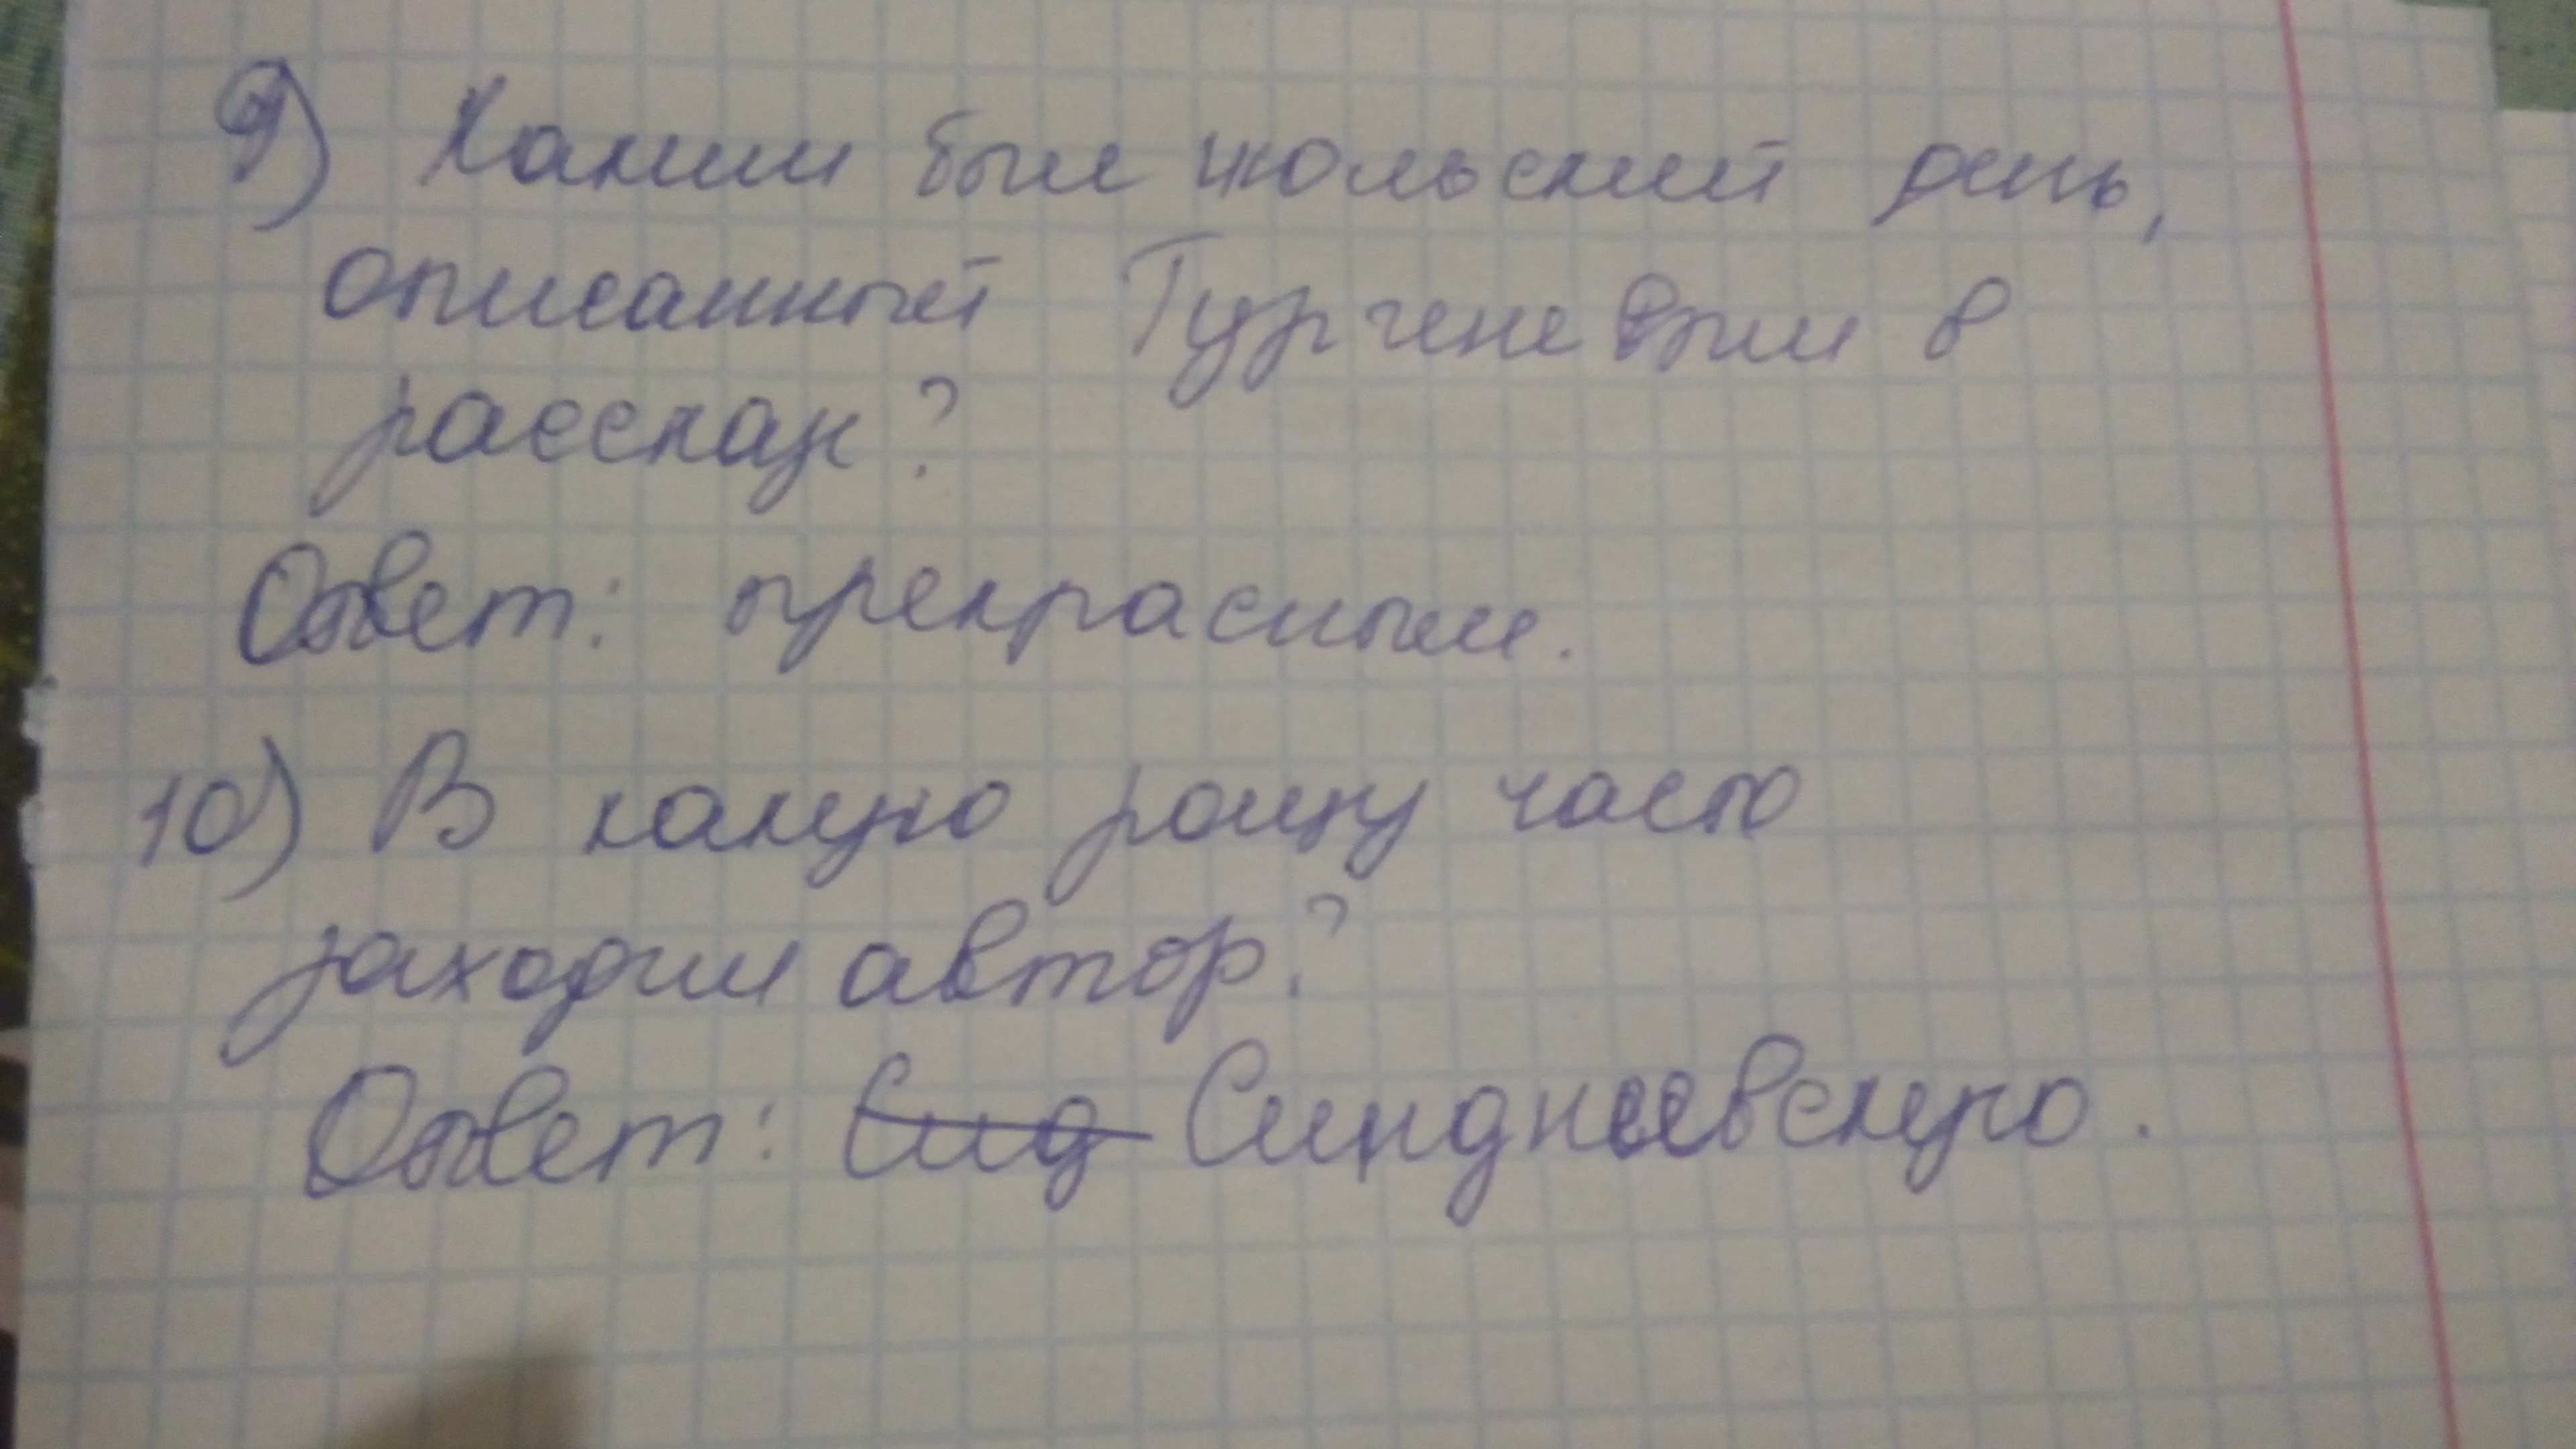 9) Каким был июльский день,
описанный Тургеневым в
рассказе?
Ответ: прекрасным.
10) В какую рощу часто
заходил автор?
Ответ: Синд